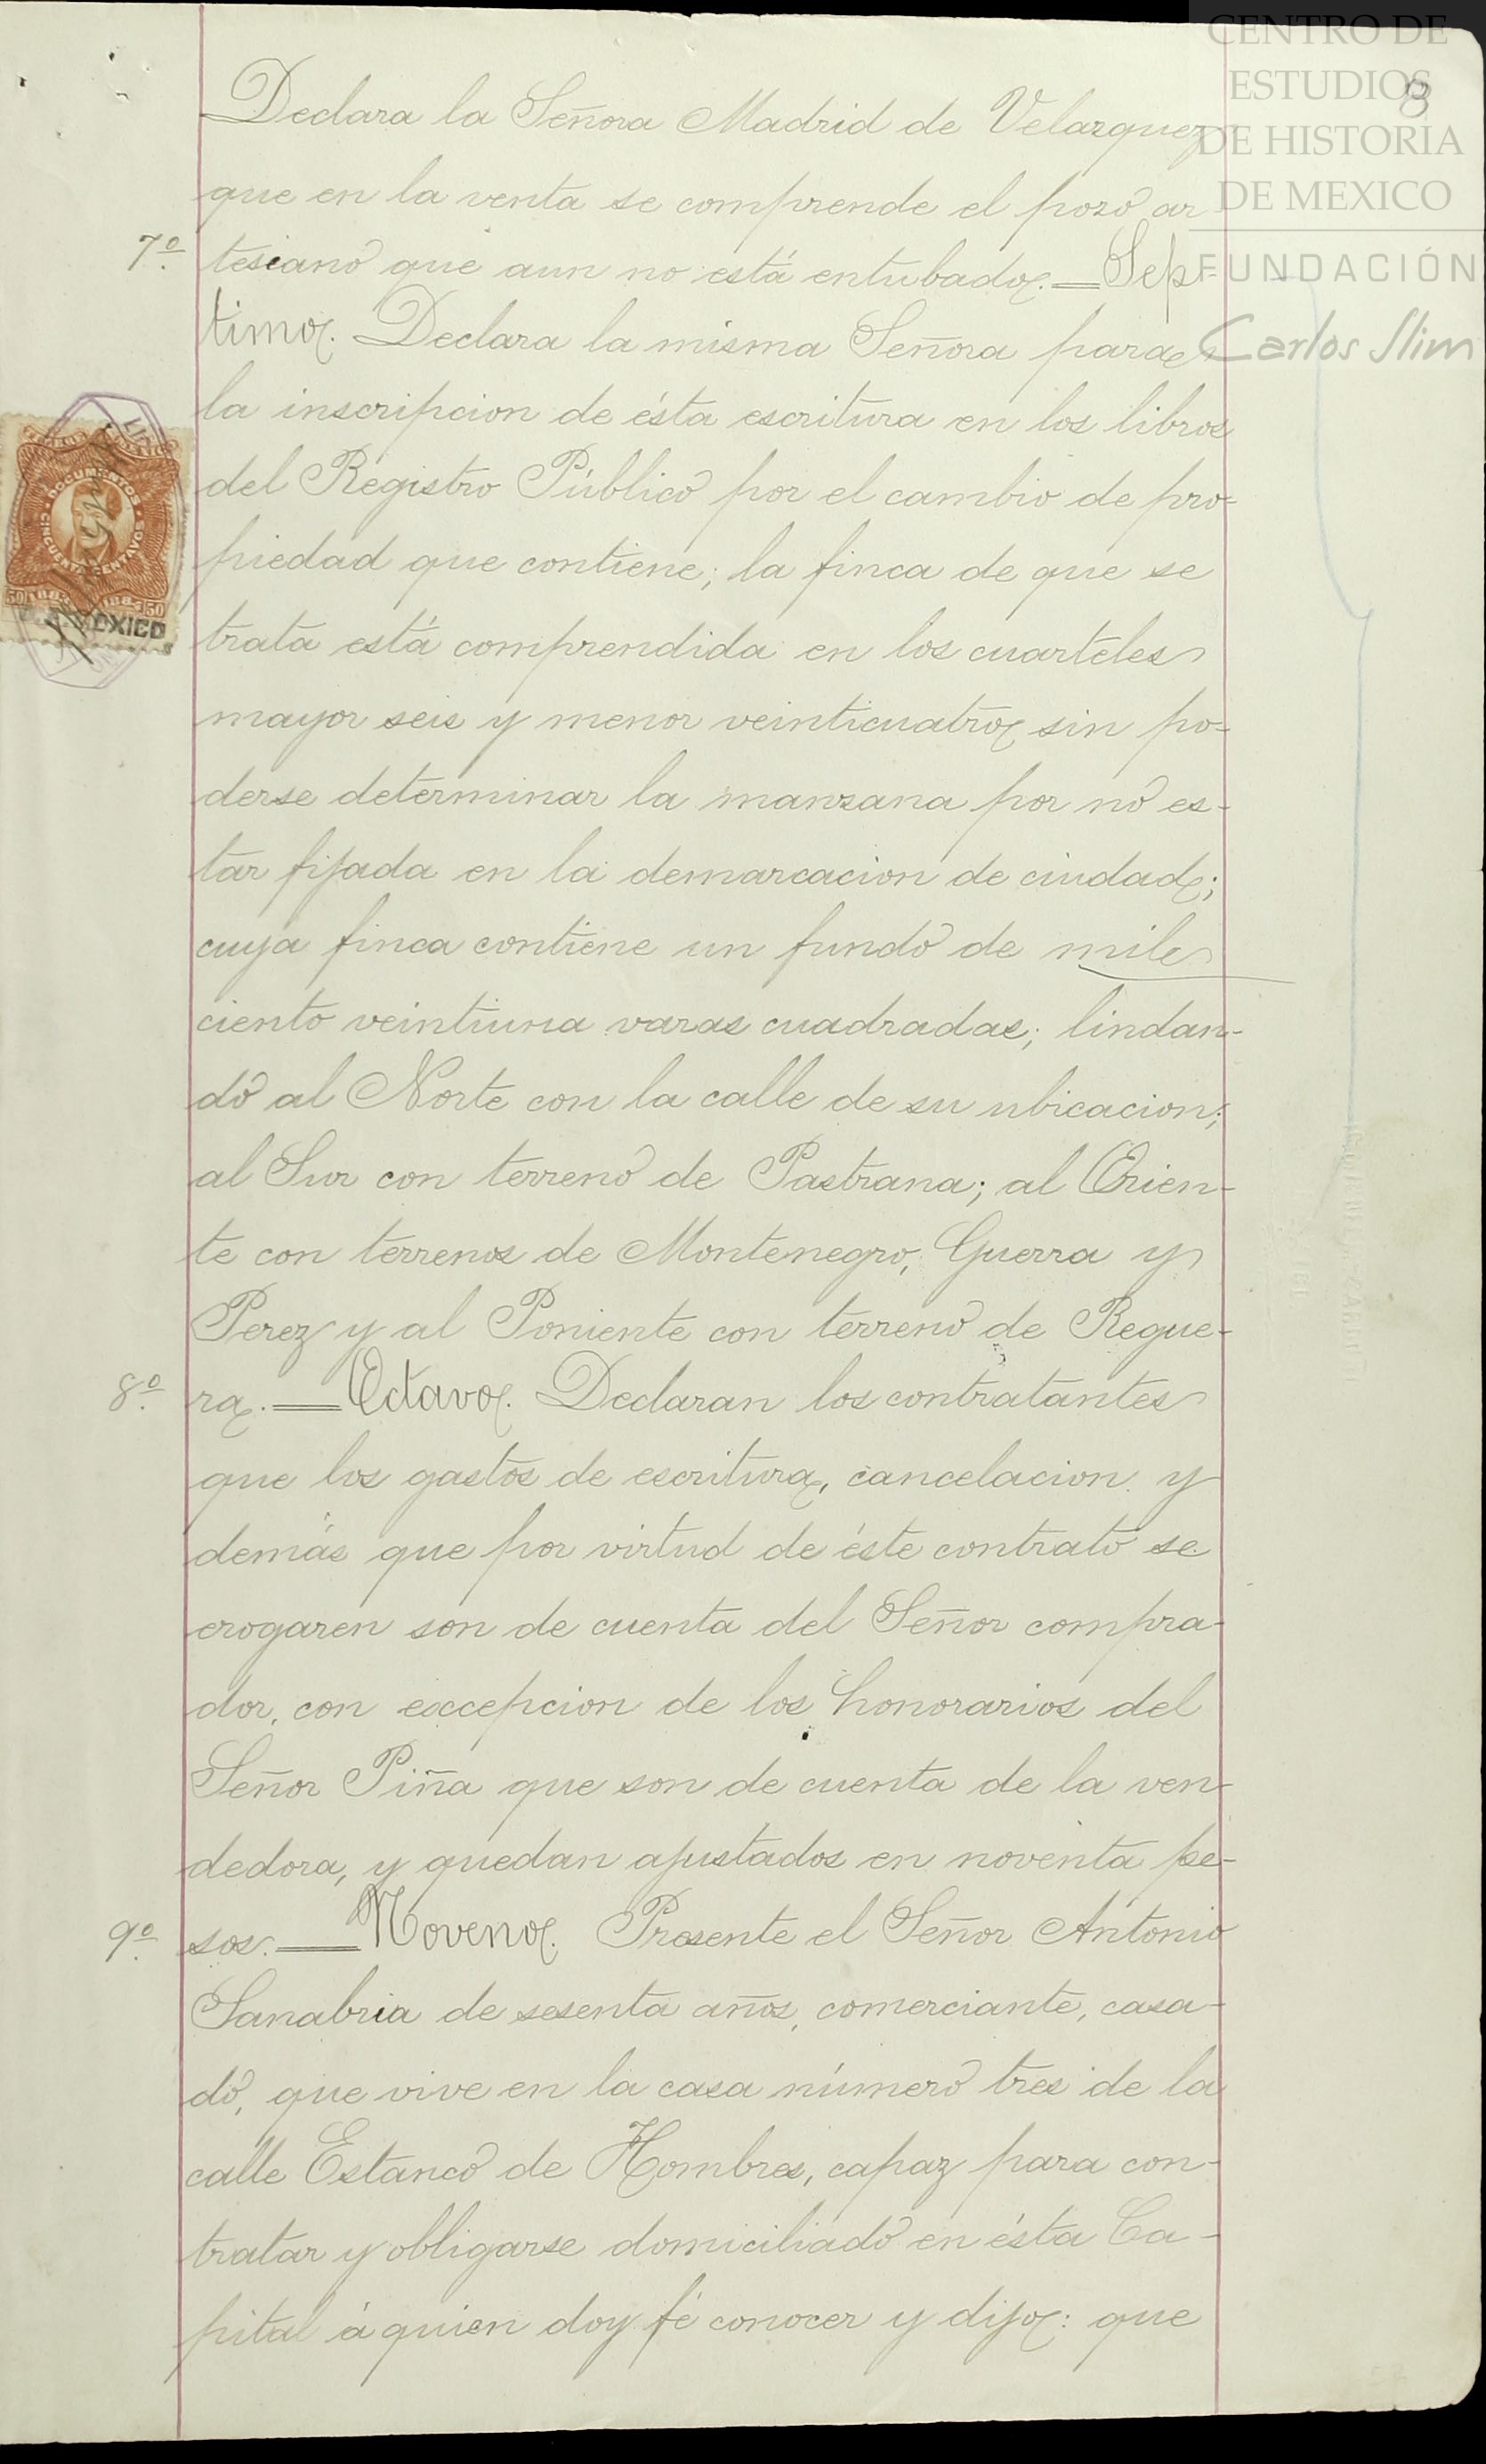 CENTRO DE
ESTUDIOS
DE HISTORIA
DE MEXICO
FUNDACIÓN
Carlos Slim
8
Declara la Señora Madrid de Velazquez
que en la venta se comprende el pozo ar
7º tesiano que aun no está entubado.—Sep-
timo. Declara la misma Señora para
la inscripcion de ésta escritura en los libros
del Registro Público por el cambio de pro-
piedad que contiene; la finca de que se
trata está comprendida en los cuarteles
mayor seis y menor veinticuatro, sin po-
derse determinar la manzana por no es-
tar fijada en la demarcacion de ciudad;
cuya finca contiene un fundo de mil
ciento veintiuna varas cuadradas; lindan-
do al Norte con la calle de su ubicacion;
al Sur con terreno de Pastrana; al Orien-
te con terrenos de Montenegro, Guerra y
Perez y al Poniente con terreno de Regue-
8º ra.—Octavo. Declaran los contratantes
que los gastos de escritura, cancelacion y
demás que por virtud de éste contrato se
erogaren son de cuenta del Señor compra-
dor, con excepcion de los honorarios del
Señor Piña que son de cuenta de la ven-
dedora, y quedan ajustados en noventa pe-
9º sos.—Noveno. Presente el Señor Antonio
Sanabria de sesenta años, comerciante, casa-
do, que vive en la casa número tres de la
calle Estanco de Hombres, capaz para con-
tratar y obligarse domiciliado en ésta Ca-
pital á quien doy fé conocer y dijo: que
DOCUMENTOS
CINCUENTA CENTAVOS
50 1884 50
MEXICO